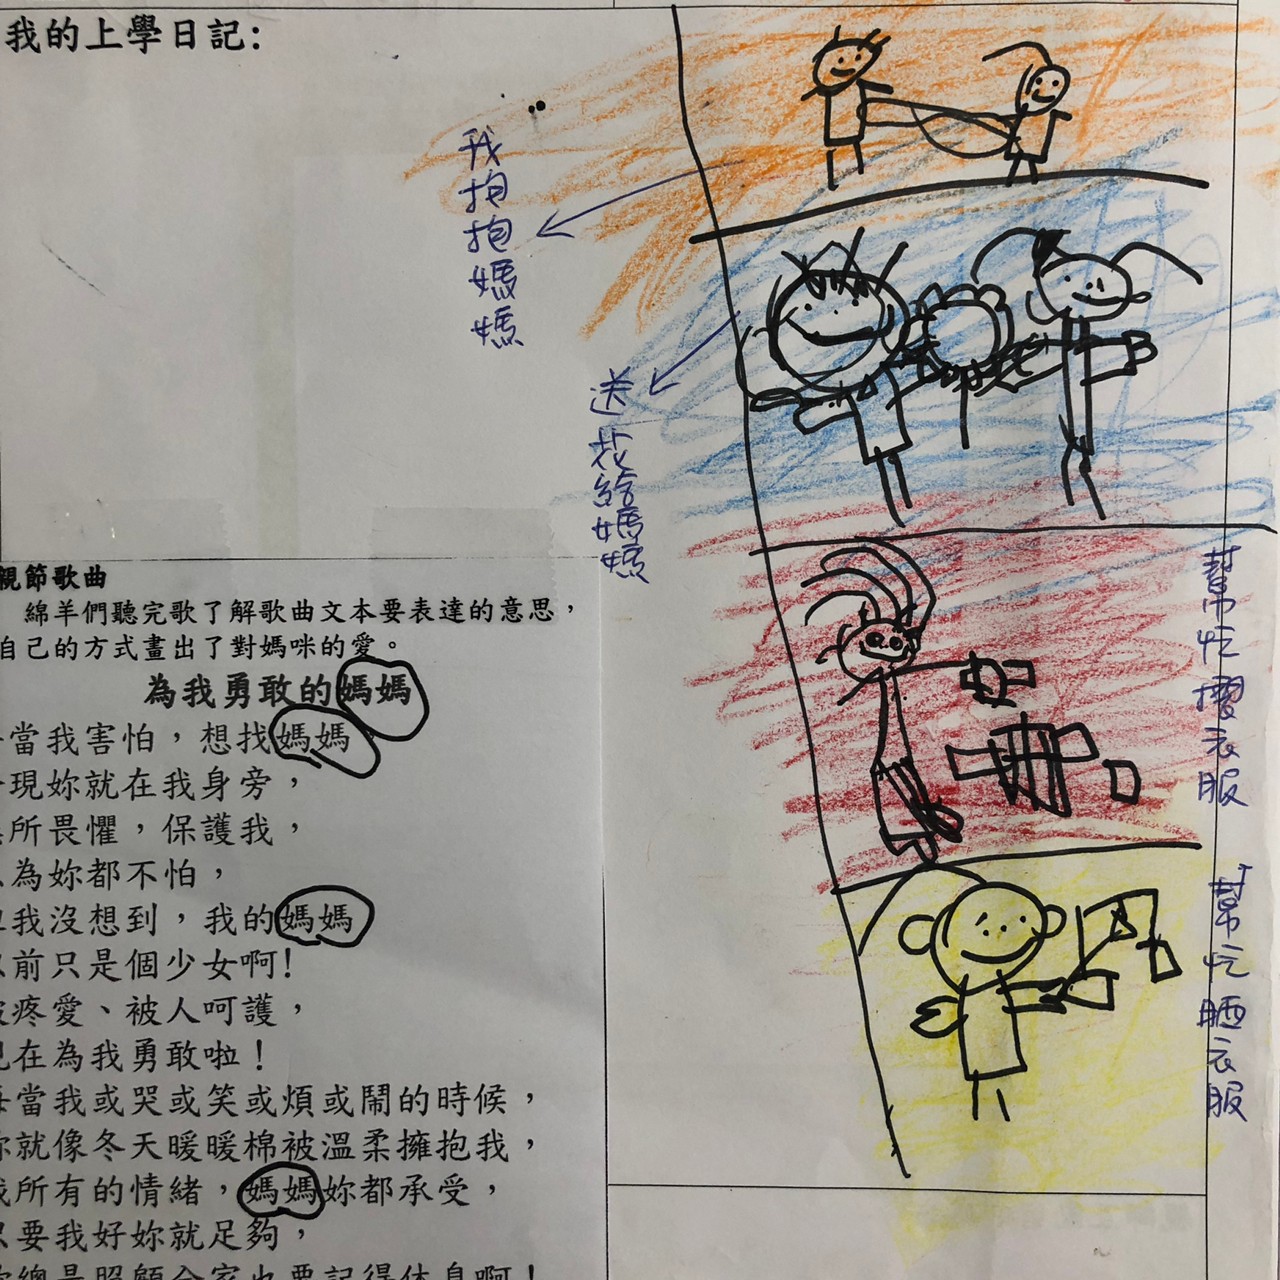 我的上學日記:
我抱抱媽媽
送花給媽媽
幫忙摺衣服
幫忙晒衣服
親節歌曲
綿羊們聽完歌了解歌曲文本要表達的意思，
自己的方式畫出了對媽咪的愛。
為我勇敢的媽媽
當我害怕，想找媽媽
現妳就在我身旁，
所畏懼，保護我，
為妳都不怕，
我沒想到，我的媽媽
前只是個少女啊!
疼愛、被人呵護，
現在為我勇敢啦!
每當我或哭或笑或煩或鬧的時候，
妳就像冬天暖暖棉被溫柔擁抱我，
我所有的情緒，媽媽妳都承受，
只要我好妳就足夠，
妳總是照顧全家也要記得休息啊!